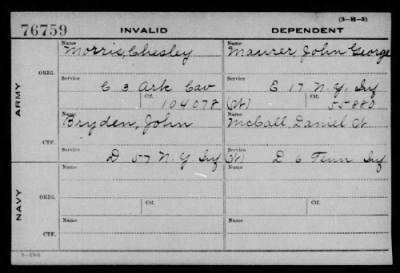 (3-M-3)
76759 INVALID DEPENDENT
Name Name
Morris, Chesley Maurer, John George
ARMY
ORIG.
Service Service
C 3 Ark Cav E 17 N.Y. Inf
Ctf. Ctf.
104078 (W) 55880
Name Name
Bryden, John McCall Daniel
CTF.
Service Service
D 57 N.Y. Inf (W) D 6 Tenn Inf
NAVY
Name Name
ORIG.
Service Ctf. Service Ctf.
Name Name
CTF.